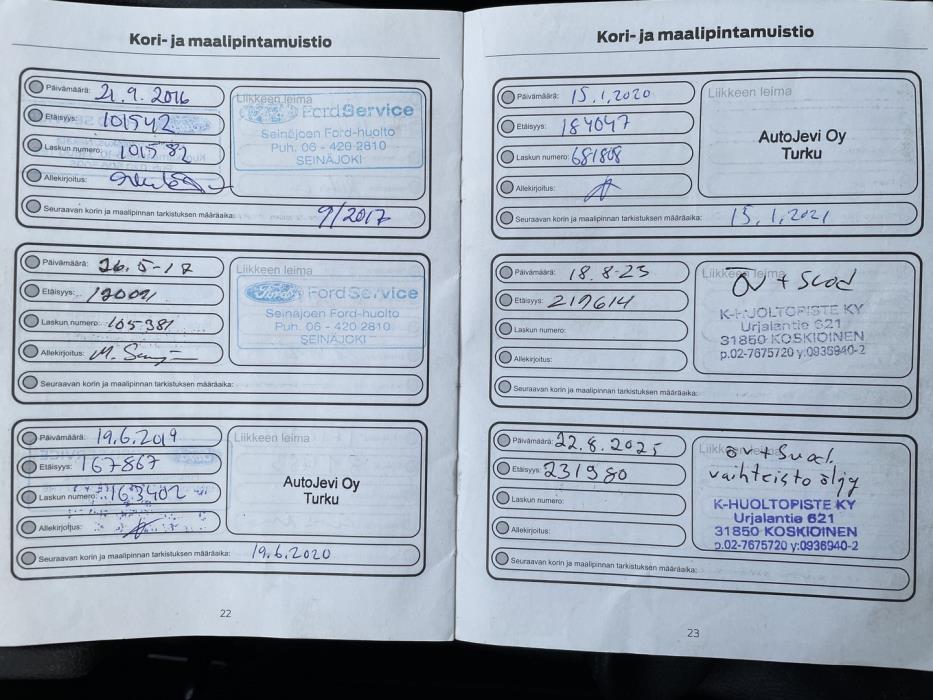 Kori- ja maalipintamuistio
Päivämäärä: 21.9.2016
Etäisyys: 101542
Laskun numero: 101582
Allekirjoitus:
Seuraavan korin ja maalipinnan tarkistuksen määräaika: 9/2017
Liikkeen leima
Ford Service
Seinäjoen Ford-huolto
Puh. 06 - 420 2810
SEINÄJOKI
Päivämäärä: 26.5-17
Etäisyys:
Laskun numero: 105381
Allekirjoitus:
Seuraavan korin ja maalipinnan tarkistuksen määräaika:
Liikkeen leima
Ford Service
Seinäjoen Ford-huolto
Puh. 06 - 420 2810
SEINÄJOKI
Päivämäärä: 19.6.2019
Etäisyys: 167867
Laskun numero: 163402
Allekirjoitus:
Seuraavan korin ja maalipinnan tarkistuksen määräaika: 19.6.2020
Liikkeen leima
AutoJevi Oy
Turku
22
Kori- ja maalipintamuistio
Päivämäärä: 15.1.2020
Etäisyys: 184047
Laskun numero: 681808
Allekirjoitus:
Seuraavan korin ja maalipinnan tarkistuksen määräaika: 15.1.2021
Liikkeen leima
AutoJevi Oy
Turku
Päivämäärä: 18.8-23
Etäisyys: 217614
Laskun numero:
Allekirjoitus:
Seuraavan korin ja maalipinnan tarkistuksen määräaika:
Liikkeen leima
öv + Suod
K-HUOLTOPISTE KY
Urjalantie 621
31850 KOSKIOINEN
p.02-7675720 y:0936940-2
Päivämäärä: 22.8.2025
Etäisyys: 231980
Laskun numero:
Allekirjoitus:
Seuraavan korin ja maalipinnan tarkistuksen määräaika:
Liikkeen leima
öv + Suod.
vaihteisto öljy
K-HUOLTOPISTE KY
Urjalantie 621
31850 KOSKIOINEN
p.02-7675720 y:0936940-2
23